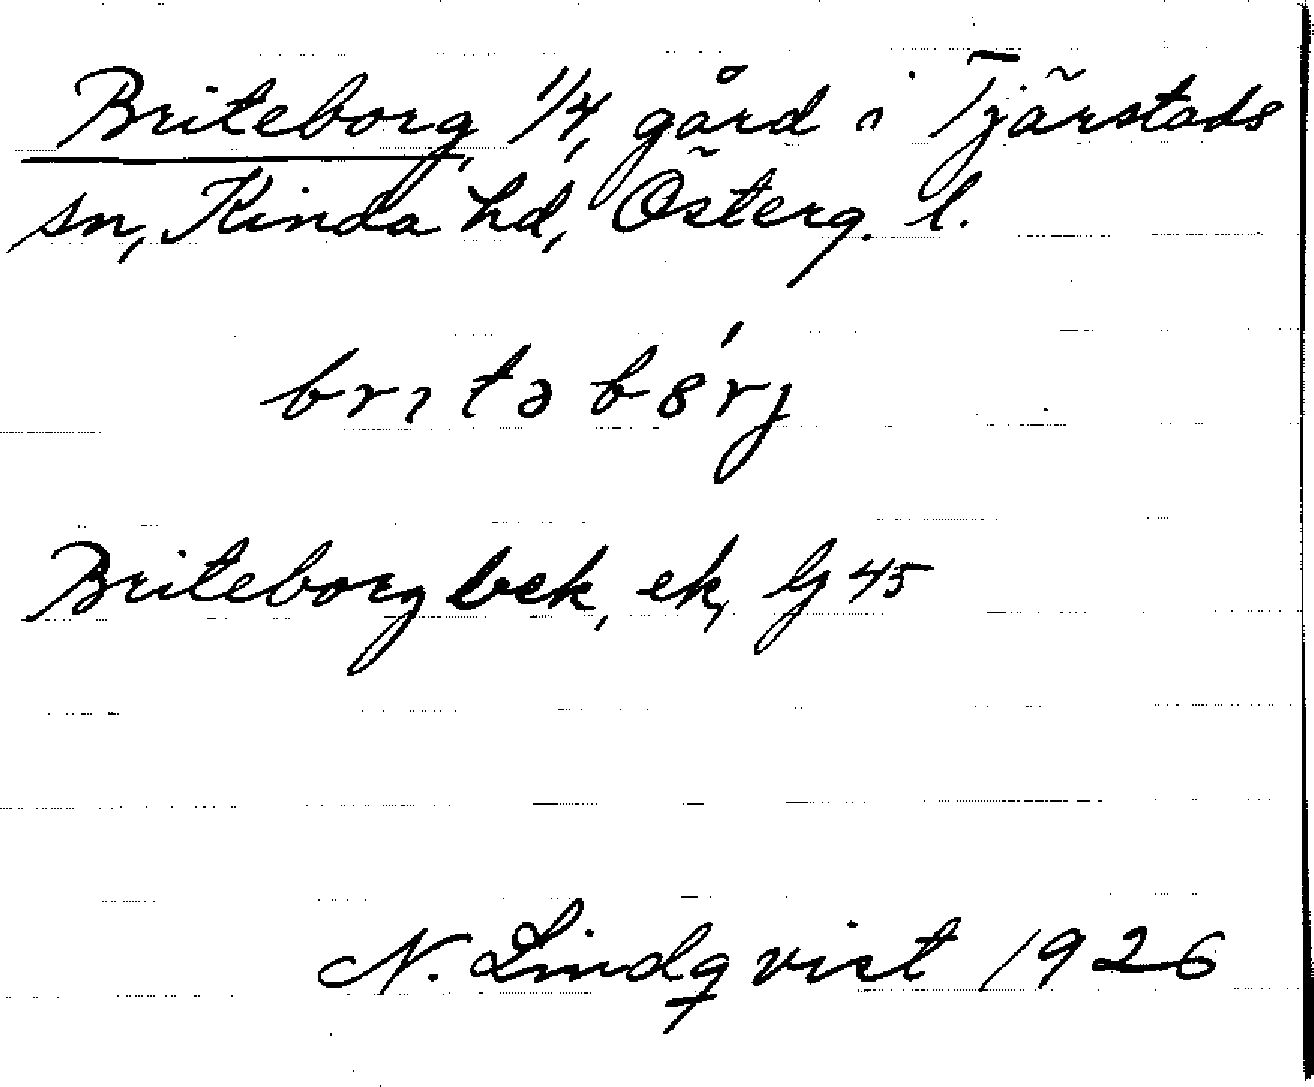 Briteborg, 1/4, gård i Tjärstads
sn, Kinda hd, Österg. l.
brıtəb8́rj
Briteborg bek, ek, Lj 45
N. Lindqvist 1926